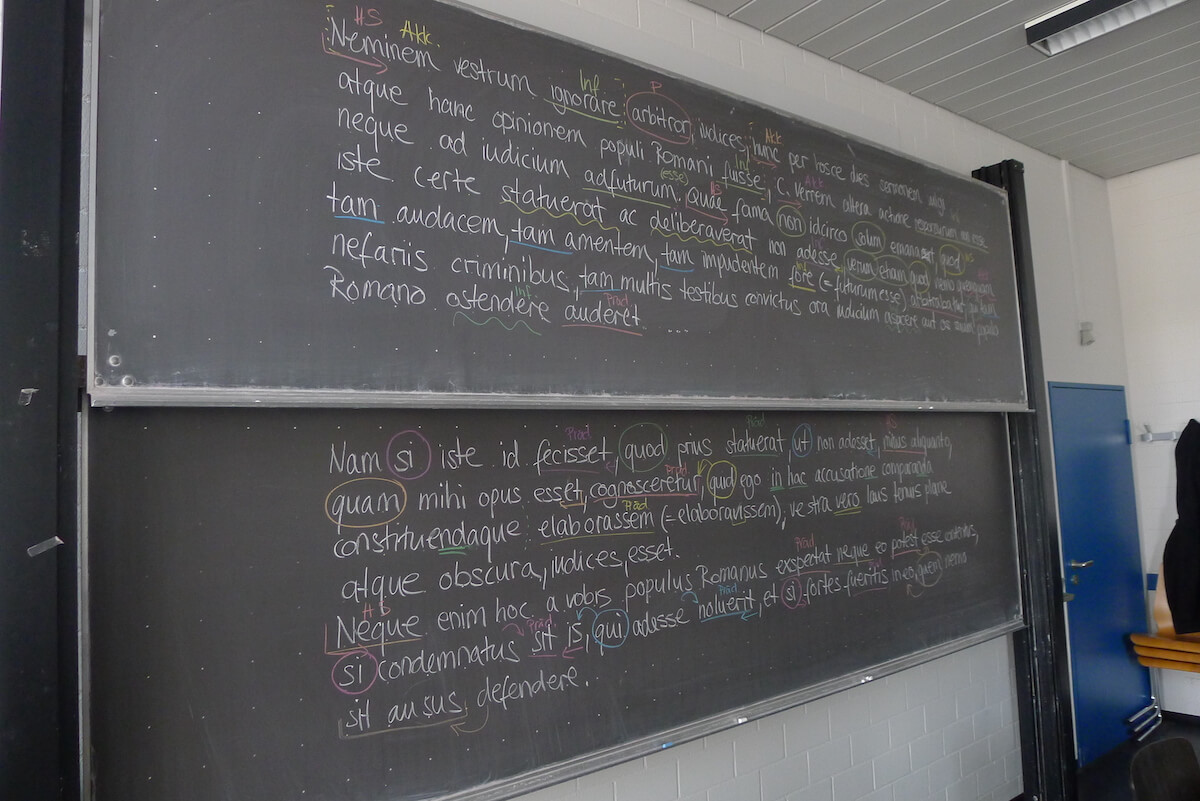 HS Akk.
Neminem vestrum ignorare arbitror, iudices, hunc per hosce dies sermonem vulgi
atque hanc opinionem populi Romani fuisse, C. Verrem altera actione responsurum non esse
neque ad iudicium adfuturum (esse). Quae fama non idcirco solum emanarat, quod
iste certe statuerat ac deliberaverat non adesse, verum etiam quod nemo quemquam
tam audacem, tam amentem, tam impudentem fore (= futurum esse) arbitrabatur, qui tam
nefariis criminibus, tam multis testibus convictus ora iudicium aspicere aut os suum populo
Romano ostendere auderet ....
Nam si iste id fecisset, quod prius statuerat, ut non adesset, minus aliquanto,
quam mihi opus esset, cognosceretur, quid ego in hac accusatione comparanda
constituendaque elaborassem (= elaboravissem), vestra vero laus tenuis plane
atque obscura, iudices, esset.
Neque enim hoc a vobis populus Romanus exspectat neque eo potest esse contentus,
si condemnatus sit is, qui adesse noluerit, et si fortes fueritis in eo, quem nemo
sit ausus defendere.